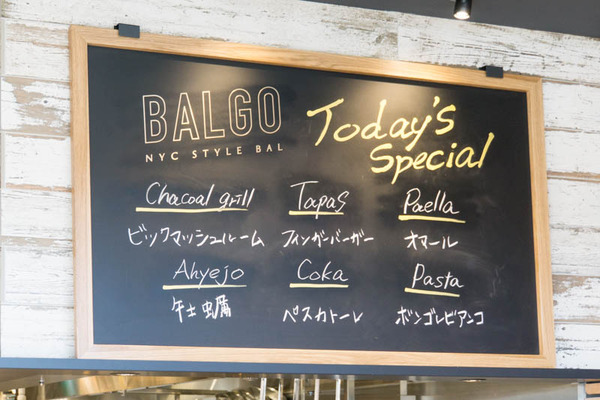 BALGO
NYC STYLE BAL
Today's
Special
Chacoal grill
Tapas
Paella
ビックマッシュルーム
フィンガーバーガー
オマール
Ahyejo
Coka
Pasta
ペスカトーレ
ボンゴレビアンコ